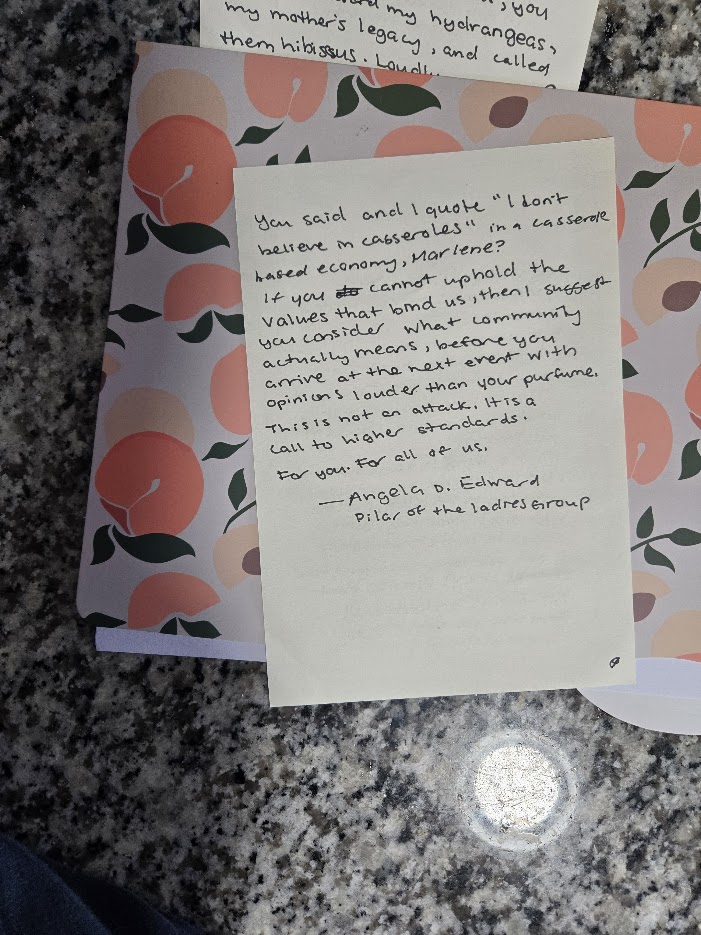 , you
my hydrangeas,
my mother's legacy, and called
them hibissus. Loudly
You said and I quote "I don't
believe in casseroles" in a casserole
based economy, Marlene?
If you cannot uphold the
values that bind us, then I suggest
you consider what community
actually means, before you
arrive at the next event with
opinions louder than your purfume.
This is not an attack. It is a
call to higher standards.
For you. For all of us.
— Angela D. Edward
Pilar of the ladies Group